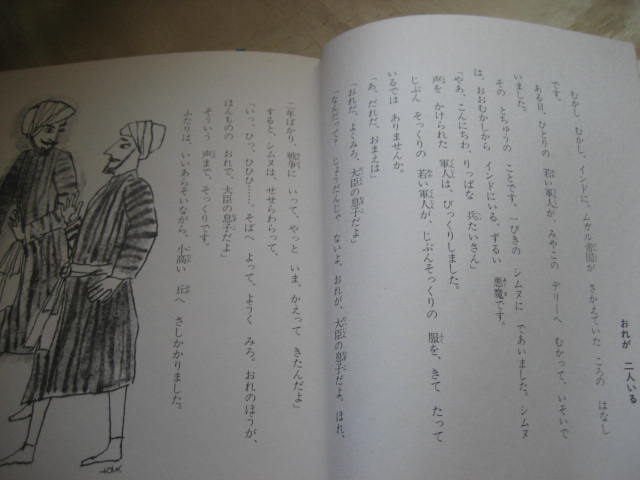 おれが 二人いる
むかし むかし、インドに、ムガル帝国が さかえていた ころの はなし
です。
ある日、ひとりの 若い軍人が、みやこの デリーへ むかって、いそいで
いました。
その とちゅうの ことです。一ぴきの シムヌに であいました。シムヌ
は、おおむかしから インドにいる、ずるい 悪魔です。
「やあ、こんにちわ、りっぱな 兵たいさん」
声を かけられた 軍人は、びっくりしました。
じぶん そっくりの 若い軍人が、じぶんそっくりの 服を、きて たって
いるでは ありませんか。
「あ、だれだ、おまえは」
「おれだ、よくみろ、大臣の息子だよ」
「なんだって？ じょうだんじゃ ないよ。おれが、大臣の息子だよ。ほれ、
二年ばかり、戦争に いって、やっと いま、かえって きたんだよ」
すると、シムヌは、せせらわらって、
「いっ、ひっ、ひひひ……。そばへ よって、ようく みろ。おれのほうが、
ほんものの おれで、大臣の息子だよ」
そういう 声まで、そっくりです。
ふたりは、いいあらそいながら、小高い 丘へ さしかかりました。